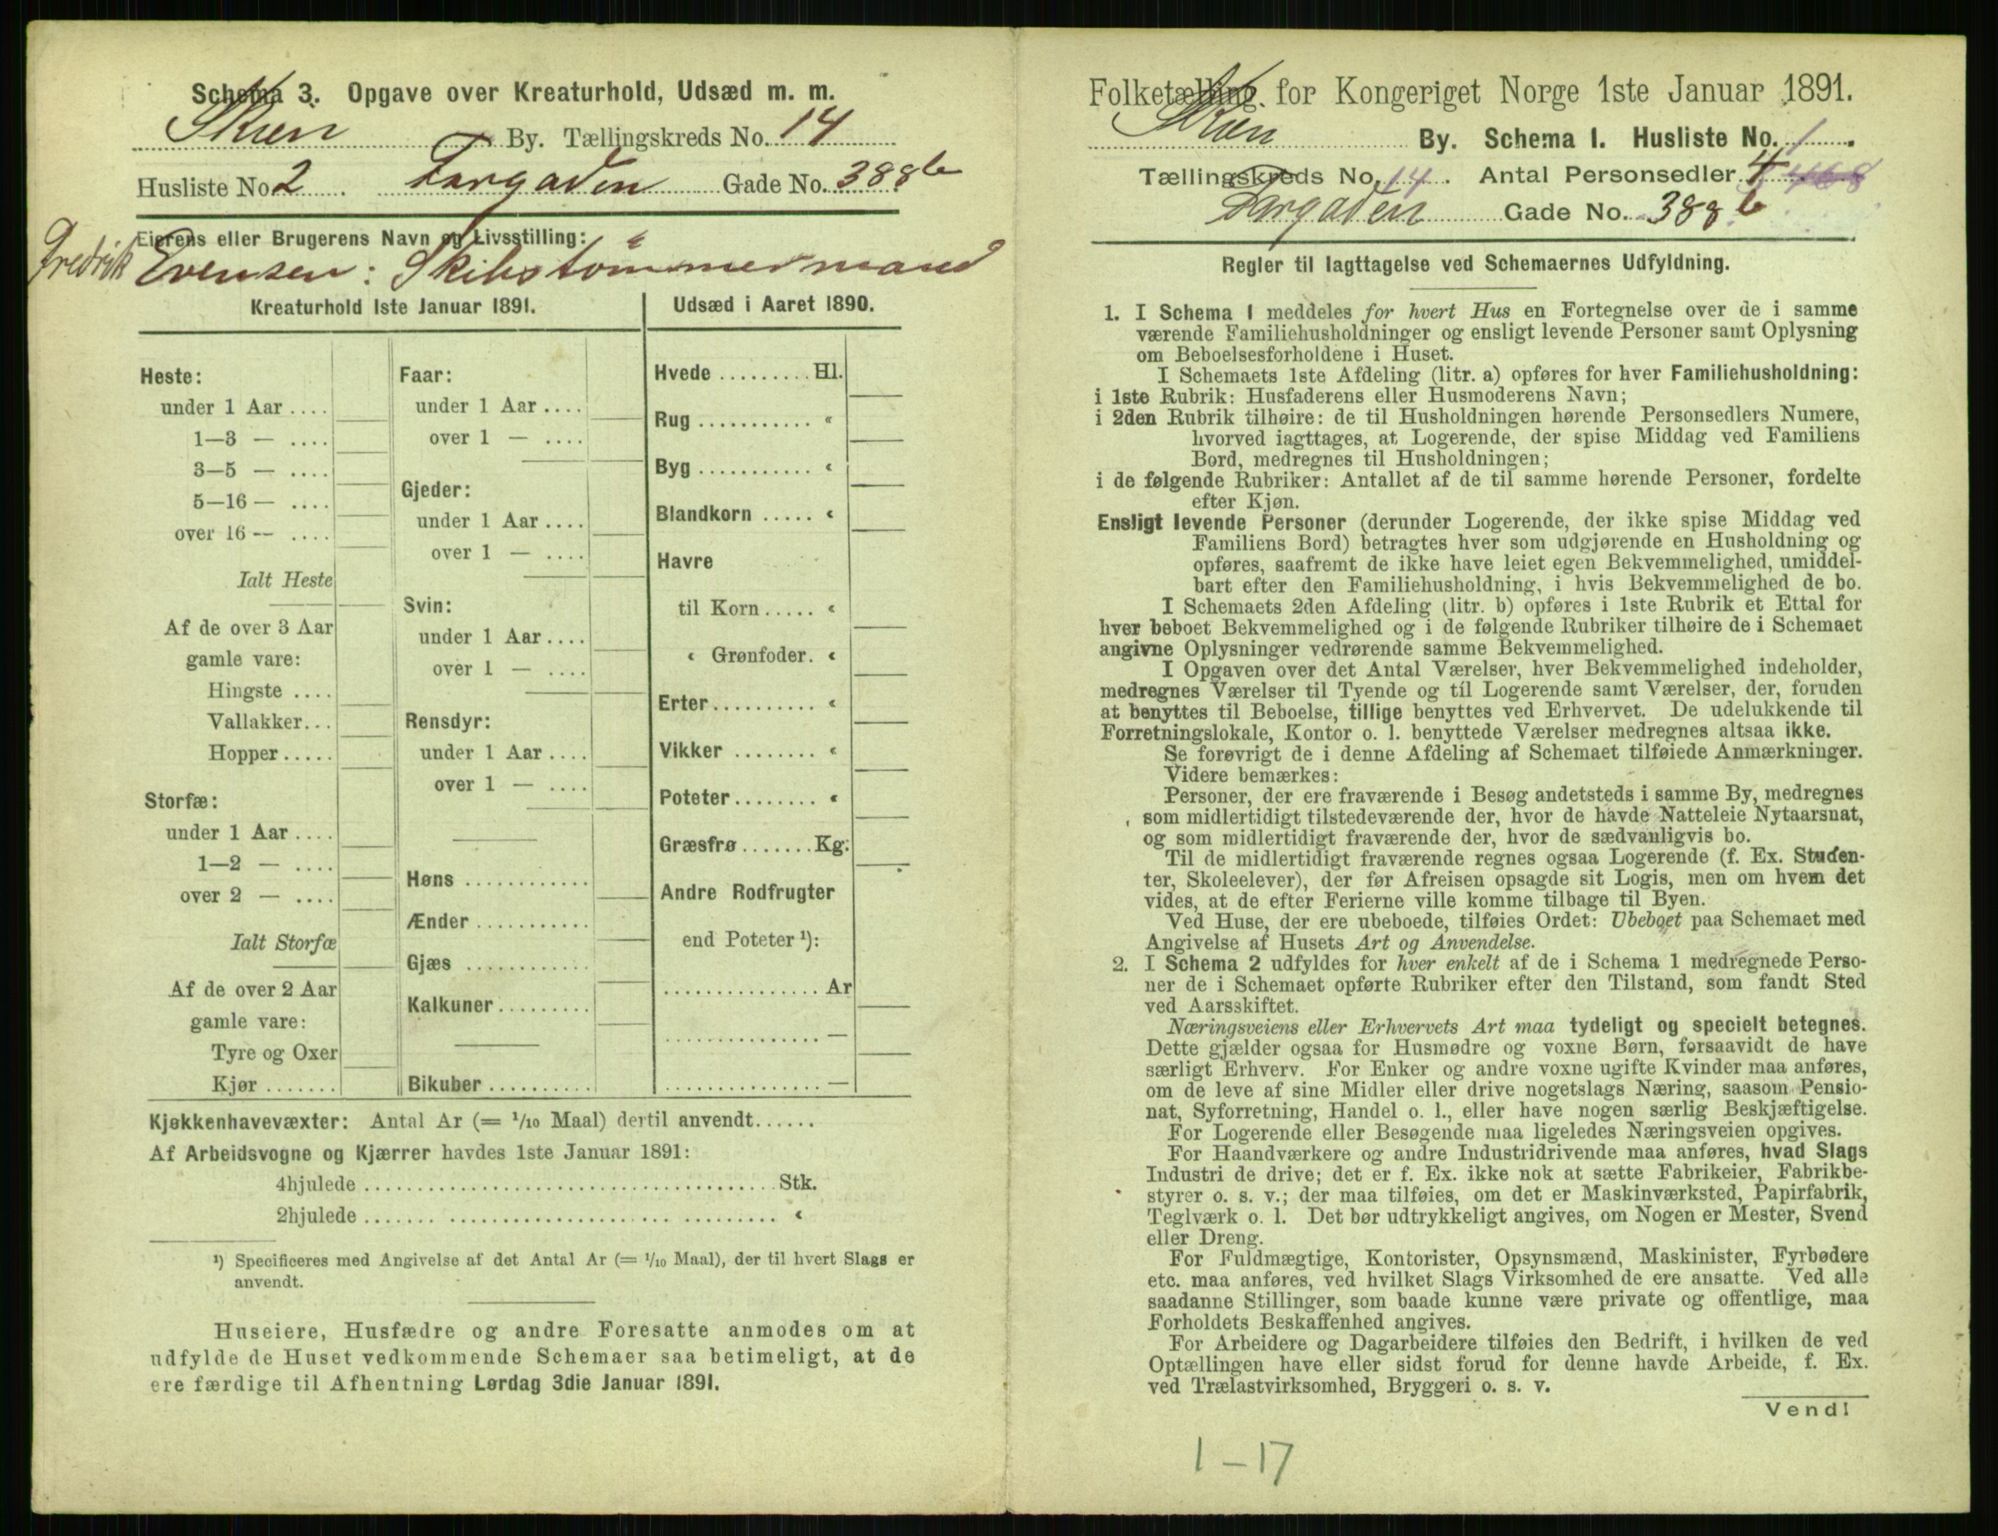 Schema 3. Opgave over Kreaturhold, Udsæd m. m.
Skien By. Tællingskreds No. 14
Husliste No 2 Torgaden Gade No. 388b
Eierens eller Brugerens Navn og Livsstilling:
Fredrik Evensen: Skibstömmermand
Kreaturhold 1ste Januar 1891.
Heste:
under 1 Aar ....
1—3 — ....
3—5 — ....
5—16 — ....
over 16 — ....
Ialt Heste
Af de over 3 Aar
gamle vare:
Hingste ....
Vallakker...
Hopper.....
Storfæ:
under 1 Aar ....
1—2 — ....
over 2 — ....
Ialt Storfæ
Af de over 2 Aar
gamle vare:
Tyre og Oxer
Kjør .......
Faar:
under 1 Aar ....
over 1 — ....
Gjeder:
under 1 Aar ....
over 1 — ....
Svin:
under 1 Aar ....
over 1 — ....
Rensdyr:
under 1 Aar ....
over 1 — ....
Høns ............
Ænder ...........
Gjæs ............
Kalkuner.........
Bikuber ..........
Udsæd i Aaret 1890.
Hvede ......... Hl.
Rug ........... «
Byg ........... «
Blandkorn ..... «
Havre
til Korn..... «
« Grønfoder. «
Erter.......... «
Vikker ........ «
Poteter........ «
Græsfrø....... Kg.
Andre Rodfrugter
end Poteter ¹):
............... Ar
............... —
............... —
Kjøkkenhavevæxter: Antal Ar (= 1/10 Maal) dertil anvendt......
Af Arbeidsvogne og Kjærrer havdes 1ste Januar 1891:
4hjulede ........................................ Stk.
2hjulede ........................................ «
¹) Specificeres med Angivelse af det Antal Ar (= 1/10 Maal), der til hvert Slags er
anvendt.
Huseiere, Husfædre og andre Foresatte anmodes om at
udfylde de Huset vedkommende Schemaer saa betimeligt, at de
ere færdige til Afhentning Lørdag 3die Januar 1891.
Folketælling for Kongeriget Norge 1ste Januar 1891.
Skien By. Schema I. Husliste No. 1.
Tællingskreds No. 14. Antal Personsedler 4
Torgaden Gade No. 388 b
Regler til Iagttagelse ved Schemaernes Udfyldning.
1. I Schema I meddeles for hvert Hus en Fortegnelse over de i samme
værende Familiehusholdninger og ensligt levende Personer samt Oplysning
om Beboelsesforholdene i Huset.
I Schemaets 1ste Afdeling (litr. a) opføres for hver Familiehusholdning:
i 1ste Rubrik: Husfaderens eller Husmoderens Navn;
i 2den Rubrik tilhøire: de til Husholdningen hørende Personsedlers Numere,
hvorved iagttages, at Logerende, der spise Middag ved Familiens
Bord, medregnes til Husholdningen;
i de følgende Rubriker: Antallet af de til samme hørende Personer, fordelte
efter Kjøn.
Ensligt levende Personer (derunder Logerende, der ikke spise Middag ved
Familiens Bord) betragtes hver som udgjørende en Husholdning og
opføres, saafremt de ikke have leiet egen Bekvemmelighed, umiddel-
bart efter den Familiehusholdning, i hvis Bekvemmelighed de bo.
I Schemaets 2den Afdeling (litr. b) opføres i 1ste Rubrik et Ettal for
hver beboet Bekvemmelighed og i de følgende Rubriker tilhøire de i Schemaet
angivne Oplysninger vedrørende samme Bekvemmelighed.
I Opgaven over det Antal Værelser, hver Bekvemmelighed indeholder,
medregnes Værelser til Tyende og til Logerende samt Værelser, der, foruden
at benyttes til Beboelse, tillige benyttes ved Erhvervet. De udelukkende til
Forretningslokale, Kontor o. l. benyttede Værelser medregnes altsaa ikke.
Se forøvrigt de i denne Afdeling af Schemaet tilføiede Anmærkninger.
Videre bemærkes:
Personer, der ere fraværende i Besøg andetsteds i samme By, medregnes
som midlertidigt tilstedeværende der, hvor de havde Natteleie Nytaarsnat,
og som midlertidigt fraværende der, hvor de sædvanligvis bo.
Til de midlertidigt fraværende regnes ogsaa Logerende (f. Ex. Studen-
ter, Skoleelever), der før Afreisen opsagde sit Logis, men om hvem det
vides, at de efter Ferierne ville komme tilbage til Byen.
Ved Huse, der ere ubeboede, tilføies Ordet: Ubeboet paa Schemaet med
Angivelse af Husets Art og Anvendelse.
2. I Schema 2 udfyldes for hver enkelt af de i Schema 1 medregnede Perso-
ner de i Schemaet opførte Rubriker efter den Tilstand, som fandt Sted
ved Aarsskiftet.
Næringsveiens eller Erhvervets Art maa tydeligt og specielt betegnes.
Dette gjælder ogsaa for Husmødre og voxne Børn, forsaavidt de have
særligt Erhverv. For Enker og andre voxne ugifte Kvinder maa anføres,
om de leve af sine Midler eller drive nogetslags Næring, saasom Pensio-
nat, Syforretning, Handel o. l., eller have nogen særlig Beskjæftigelse.
For Logerende eller Besøgende maa ligeledes Næringsveien opgives.
For Haandværkere og andre Industridrivende maa anføres, hvad Slags
Industri de drive; det er f. Ex. ikke nok at sætte Fabrikeier, Fabrikbe-
styrer o. s. v.; der maa tilføies, om det er Maskinværksted, Papirfabrik,
Teglværk o. l. Det bør udtrykkeligt angives, om Nogen er Mester, Svend
eller Dreng.
For Fuldmægtige, Kontorister, Opsynsmænd, Maskinister, Fyrbødere
etc. maa anføres, ved hvilket Slags Virksomhed de ere ansatte. Ved alle
saadanne Stillinger, som baade kunne være private og offentlige, maa
Forholdets Beskaffenhed angives.
For Arbeidere og Dagarbeidere tilføies den Bedrift, i hvilken de ved
Optællingen have eller sidst forud for denne havde Arbeide, f. Ex.
ved Trælastvirksomhed, Bryggeri o. s. v.
Vend!
1 — 17